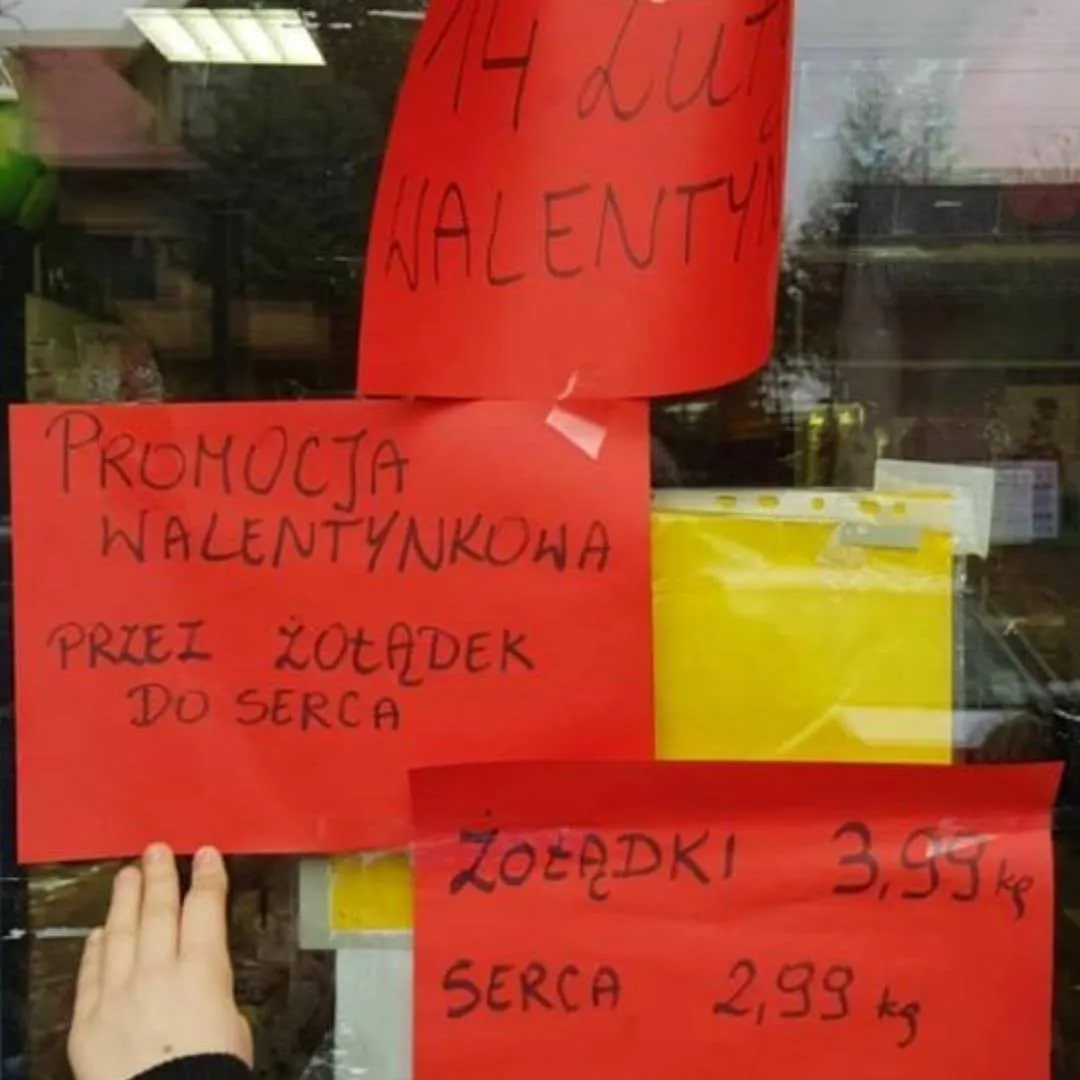 14 LUTY
WALENTYN
PROMOCJA
WALENTYNKOWA
PRZEZ ŻOŁĄDEK
DO SERCA
ŻOŁĄDKI 3,99 kg
SERCA 2,99 kg